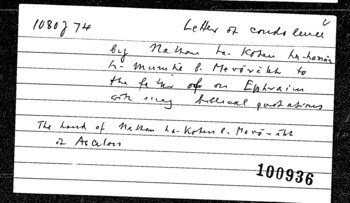 1080 J 74 Letter of condolence
by Nathan ha-Kohen ha-
b. Mevōrākh to
the father of Ephraim
with many biblical quotations
The hand of Nathan ha-Kohen b. Mevōrākh
of Ascalon
100936